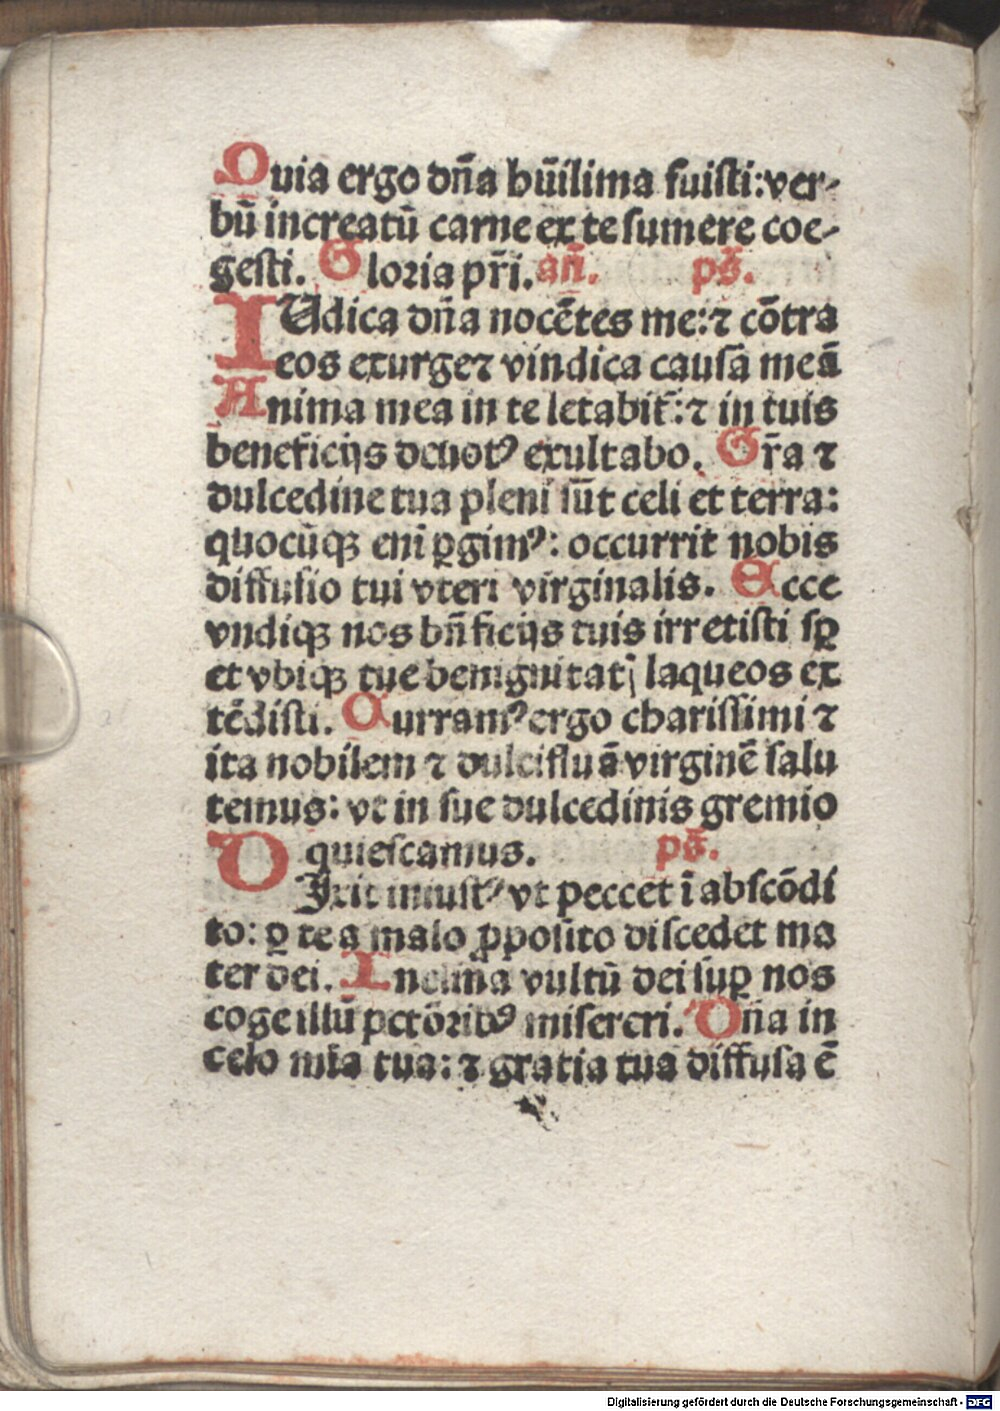 Quia ergo dña hũilima fuisti: ver-
bũ increatũ carne ex te sumere coe-
gesti. Gloria pr̃i. añ. ps̃.
IUdica dña nocẽtes me: ⁊ cõtra
eos exurge ⁊ vindica causã meã
Anima mea in te letabit̃: ⁊ in tuis
beneficijs deuotꝰ exultabo. Gr̃a ⁊
dulcedine tua pleni sũt celi et terra:
quocũqꝫ eni ꝑgimꝰ: occurrit nobis
diffusio tui vteri virginalis. Ecce
vndiqꝫ nos bñficijs tuis irretisti sꝑ
et vbiqꝫ tue benignitatꝭ laqueos ex
tẽdisti. Curramꝰ ergo charissimi ⁊
ita nobilem ⁊ dulcifluã virginẽ salu
temus: vt in sue dulcedinis gremio
quiescamus. ps̃.
DIxit iniustꝰ vt peccet ĩ abscõdi
to: ꝑ te a malo ꝓposito discedet ma
ter dei. Inclina vultũ dei suꝑ nos
coge illũ pctõribꝰ misereri. Dña in
celo mĩa tua: ⁊ gratia tua diffusa ẽ
Digitalisierung gefördert durch die Deutsche Forschungsgemeinschaft - DFG